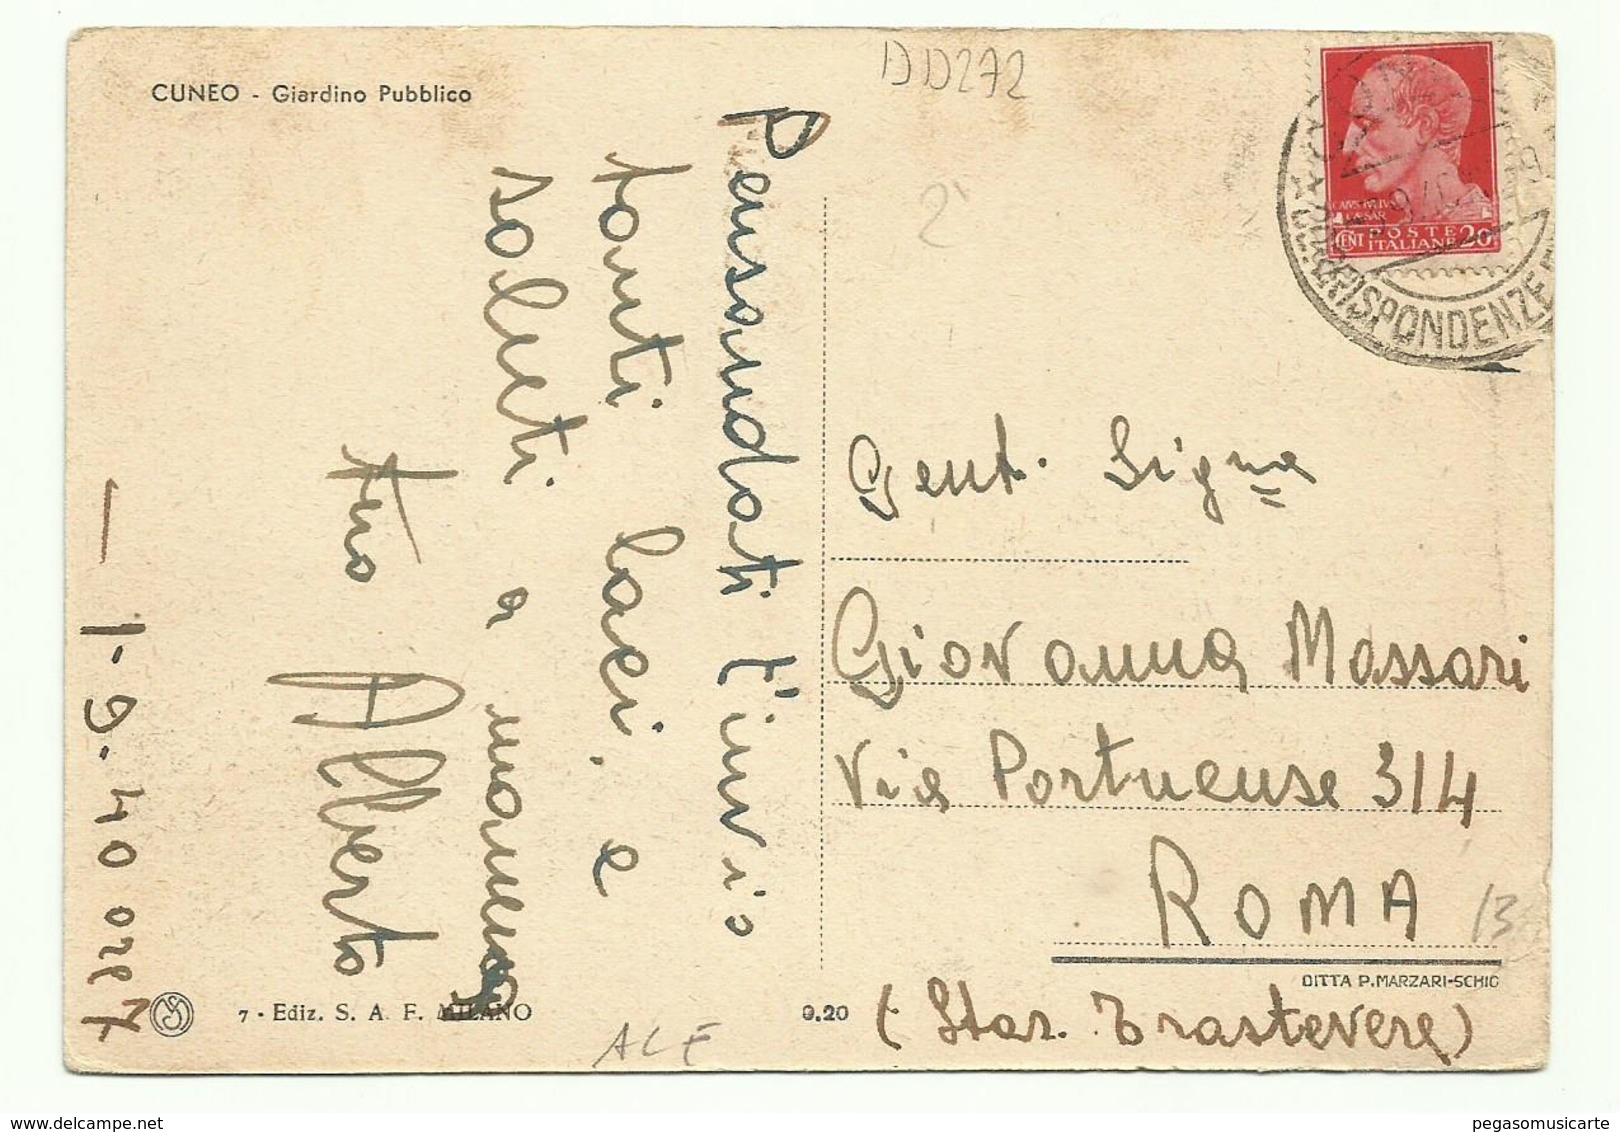 CUNEO - Giardino Pubblico
DD272
2'
CAIVS IVLIVS
CAESAR
CENT POSTE 20
ITALIANE
CORRISPONDENZE
Pensandoti t'invio
tanti baci, e
saluti a mamma
tuo Alberto
1-9-40 ore 7
Gent. Signa
Giovanna Massari
Via Portuense 314
ROMA
13
DITTA P. MARZARI-SCHIO
(Staz. Trastevere)
7 - Ediz. S. A. F. MILANO
9.20
ALF
pegasomusicarte